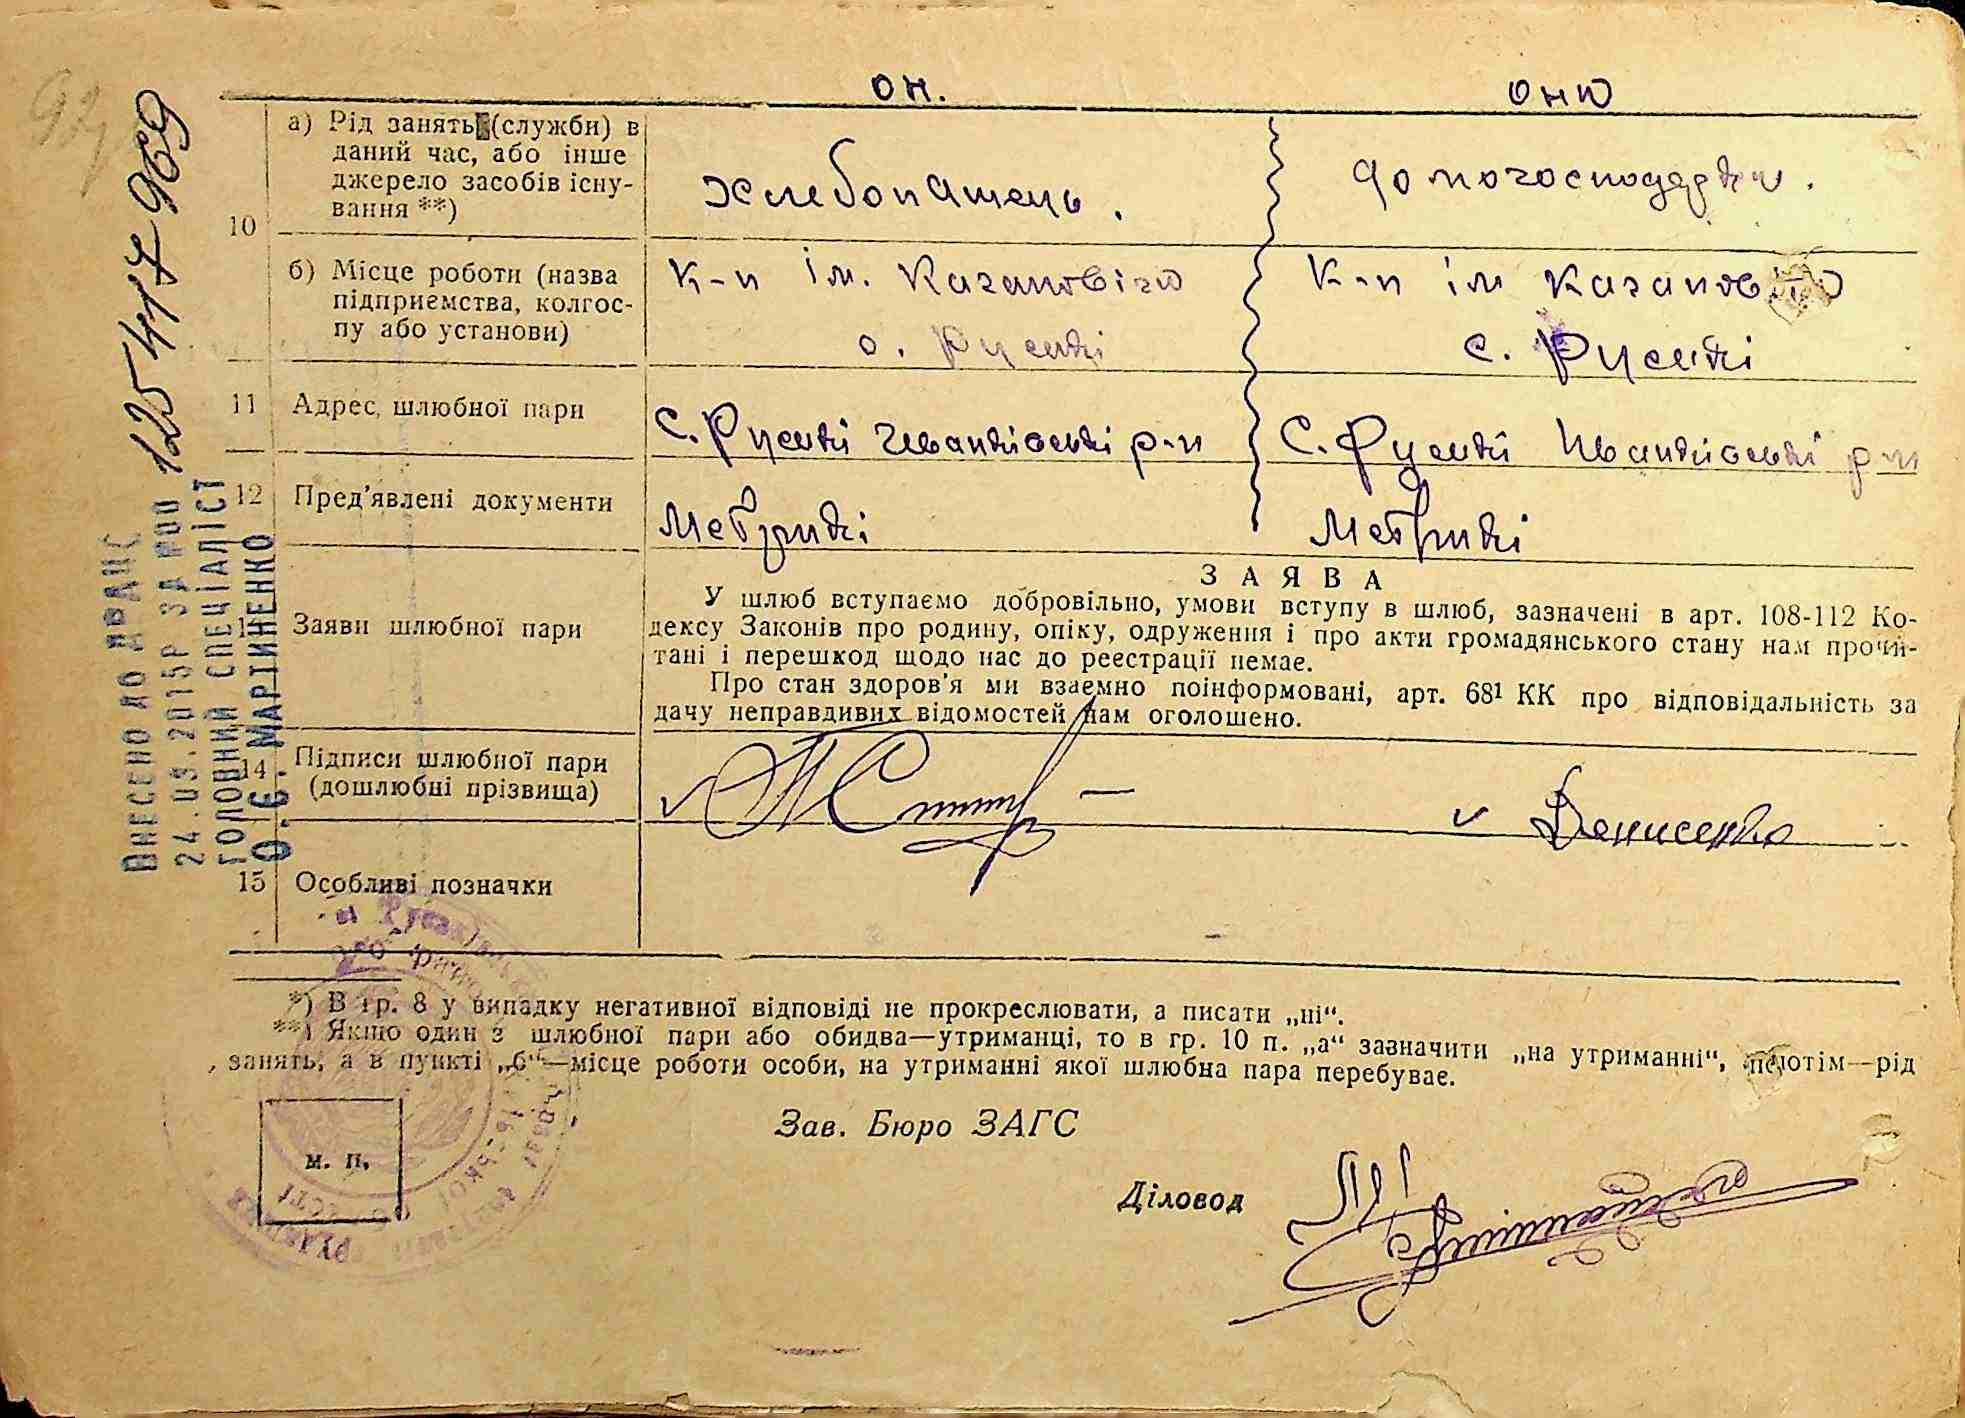 он. она
10 а) Рід занять (служби) в
даний час, або інше
джерело засобів існу-
вання **)
хлебопашець. домогосподарки.
б) Місце роботи (назва
підприємства, колгос-
пу або установи)
К-п ім. Кагановіча К-п ім Кагановіча
с. Русакі с. Русакі
11 Адрес, шлюбної пари
с. Русакі Іванківські р-н с. Русакі Іванківські р-н
12 Пред'явлені документи
Метрикі Метрикі
13 Заяви шлюбної пари
ЗАЯВА
У шлюб вступаємо добровільно, умови вступу в шлюб, зазначені в арт. 108-112 Ко-
дексу Законів про родину, опіку, одруження і про акти громадянського стану нам прочи-
тані і перешкод щодо нас до реєстрації немає.
Про стан здоров'я ми взаємно поінформовані, арт. 68¹ КК про відповідальність за
дачу неправдивих відомостей нам оголошено.
14 Підписи шлюбної пари
(дошлюбні прізвища)
Денисенко
15 Особливі позначки
*) В гр. 8 у випадку негативної відповіді не прокреслювати, а писати „ні“.
**) Якщо один з шлюбної пари або обидва—утриманці, то в гр. 10 п. „а“ зазначити „на утриманні“, потім—рід
занять, а в пункті „б“—місце роботи особи, на утриманні якої шлюбна пара перебуває.
м. п.
Зав. Бюро ЗАГС
Діловод
ВНЕСЕНО ДО ДРАЦС
24.09.2015Р ЗА №00 125417969
ГОЛОВНИЙ СПЕЦІАЛІСТ
О.Є. МАРТИНЕНКО